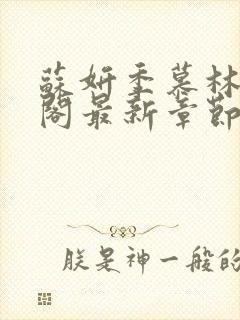 蘇妍季慕林
閣最新章節
朕是神一般的